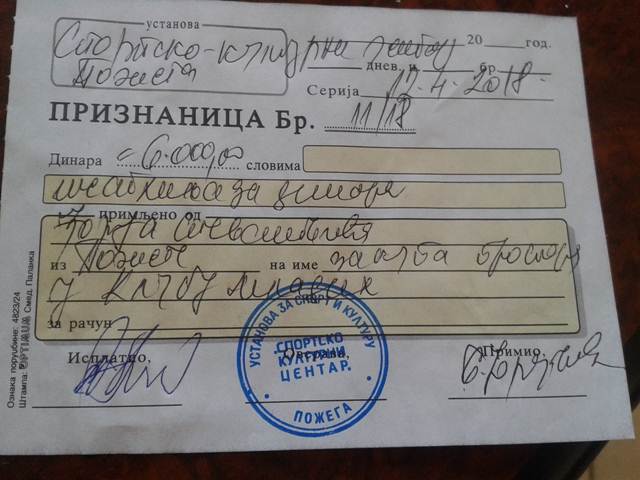 установа
Спортско-културни центар 20 год.
Пожега днев. и бр.
Серија 17-4-2018.
ПРИЗНАНИЦА Бр. 11/18
Динара = 6.000,00 словима
шестхиљада динара
примљено од
из Пожеге на име закупа простора
у Клубу младих
за рачун
Исплатио, Оверава, Примио,
УСТАНОВА ЗА СПОРТ И КУЛТУРУ
СПОРТСКО
КУЛТУРНИ
ЦЕНТАР.
ПОЖЕГА
Ознака поруџбине: 4823/24
Штампа: OPTIMUM Смед. Паланка